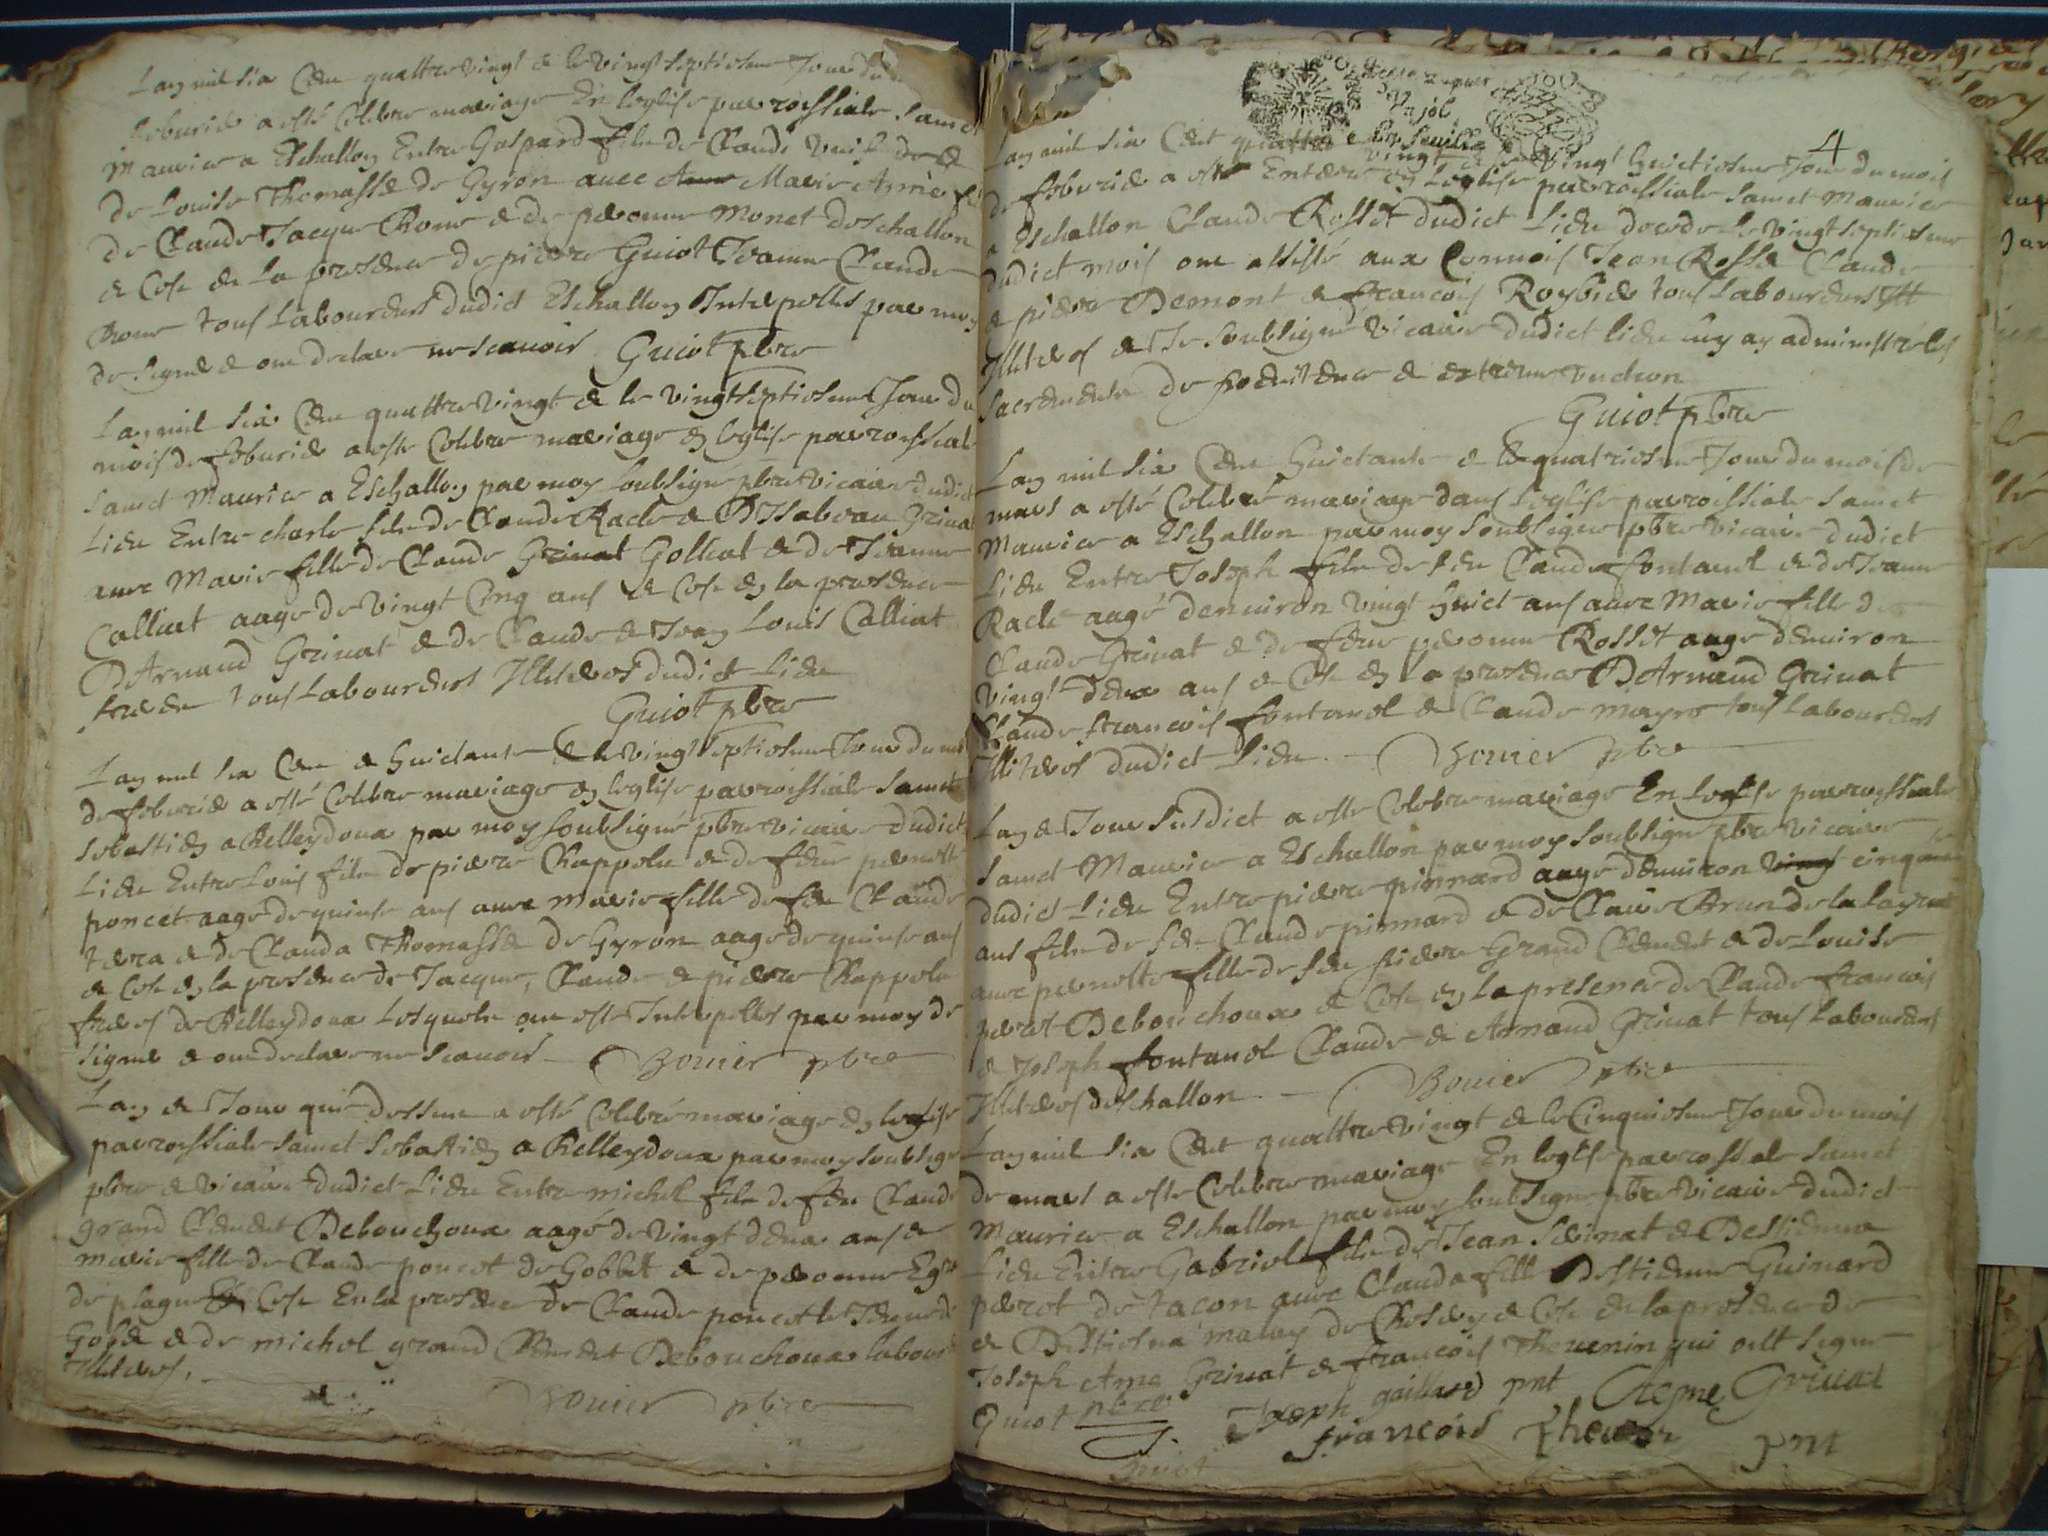 Lan mil six Cen quattre vingt & le vingt septiesme Jour du
feburié a esté Celebre mariage En leglise parroissiale Sainct
Maurice a Eschallon Entre Gaspard fils de Claude
de Louise Thomasse de Gyron avec Marie Anne
de Claude Jacque Rome & de pernonne Monet deschallon
& Ce en la presence de pierre Guiot Jeanne Claude
Rome tous Laboureurs dudict Eschallon Interpellés par moy
de signer & ont declare ne scauoir Guiot pbre
Lan mil six Cen quattre vingt & le vingt septiesme Jour du
mois de feburié a esté Celebre mariage en leglise parroissiale
Sainct Maurice a Eschallon par moy soubsigné pbre vicaire dudict
Lieu Entre charle fils de Claude Racle & D Isabeau Griuat
avec Marie fille de Claude Golliat & de Jeanne
Calliat aage de vingt Cinq ans & Ce en la presence
D Arnaud Griuat & de Claude & Jean Louis Calliat
tous Laboureurs Illiteres dudict Lieu
Guiot pbre
Lan mil six Cen & huictante & le vingt septiesme Jour du mois
de feburié a esté Celebre mariage en leglise parroissiale Sainct
Sebastien a Belleydoux par moy soubsigné pbre vicaire dudict
Lieu Entre Louis fils de pierre Chappelu & de feue pernette
poncet aagé de quinse ans avec Marie fille de feu Claude
& de Clauda Thomasse de Gyron aage de quinse ans
& Ce en la presence de Jacque, Claude & pierre Chappelu
freres de Belleydoux Lesquels ont esté Interpellés par moy de
signer & ont declare ne scauoir Bouier pbre
Lan & Jour que dessus a esté Celebré mariage en leglise
parroissiale Sainct Sebastien a Belleydoux par moy soubsigné
pbre & vicaire dudict Lieu Entre michel fils de feu Claude
grand Clement Debouchoux aagé de vingt deux ans &
marie fille de Claude poncet de Gobbet & de pernonne
de plagne & Ce En la presence de Claude poncet
Gobe & de michel grand Clement Debouchoux
Illiteres.
Bouier pbre
4
Lan mil six Cent quattre vingt & le vingt huictiesme Jour du mois
de feburié a esté Enterre en leglise parroissiale Sainct Maurice
a Eschallon Claude Rosset dudict Lieu decede le vingt septiesme
dudict mois ont assisté aux Connois Jean Rosse Claude
& pierre Demont & francois Roybié tous Laboureurs
Illiteres & Je soubsigné vicaire dudict lieu luy ay administré les
sacremens de poenitence & extreme unction
Guiot pbre
Lan mil six Cen huictante & le quatriesme Jour du mois de
mars a esté Celebré mariage dans leglise parroissiale Sainct
Maurice a Eschallon par moy soubsigné pbre vicaire dudict
Lieu Entre Joseph fils de feu Claude fontanel & de Jeanne
Racle aagé denuiron vingt huict ans avec Marie fille de
Claude Griuat & de feue pernonne Rosset aage denuiron
vingt deux ans & Ce en la presence D Arnaud Griuat
Claude francois fontanel & Claude mayre tous Laboureurs
Illiteres dudict Lieu. Bouier pbre
Lan & Jour susdict a esté Celebre mariage En leglise parroissiale
Sainct Maurice a Eschallon par moy soubsigné pbre vicaire
dudict Lieu Entre pierre pinnard aagé denuiron cinquante
ans fils de feu Claude pinnard & de Claire
avec pernette fille de feu pierre Grand Clement & de Louise
perrot Debouchoux & Ce en la presence de Claude francois
& Joseph fontanel Claude & Arnaud Griuat tous Laboureurs
Illiteres deschallon. Bouier pbre
Lan mil six Cent quattre vingt & le Cinquiesme Jour du mois
de mars a esté Celebre mariage En leglise parrossiale Sainct
Maurice a Eschallon par moy soubsigné pbre vicaire dudict
Lieu Entre Gabriel fils de Jean & Destienna
perrot de Jacon avec Clauda fille Destienne Guinard
& Destiesna & Ce en la presence de
Joseph Ame Griuat & francois Theuenin qui ont signe
Guiot pbre Joseph gaillard pnt Ayme Griuat
francois Theuen pnt